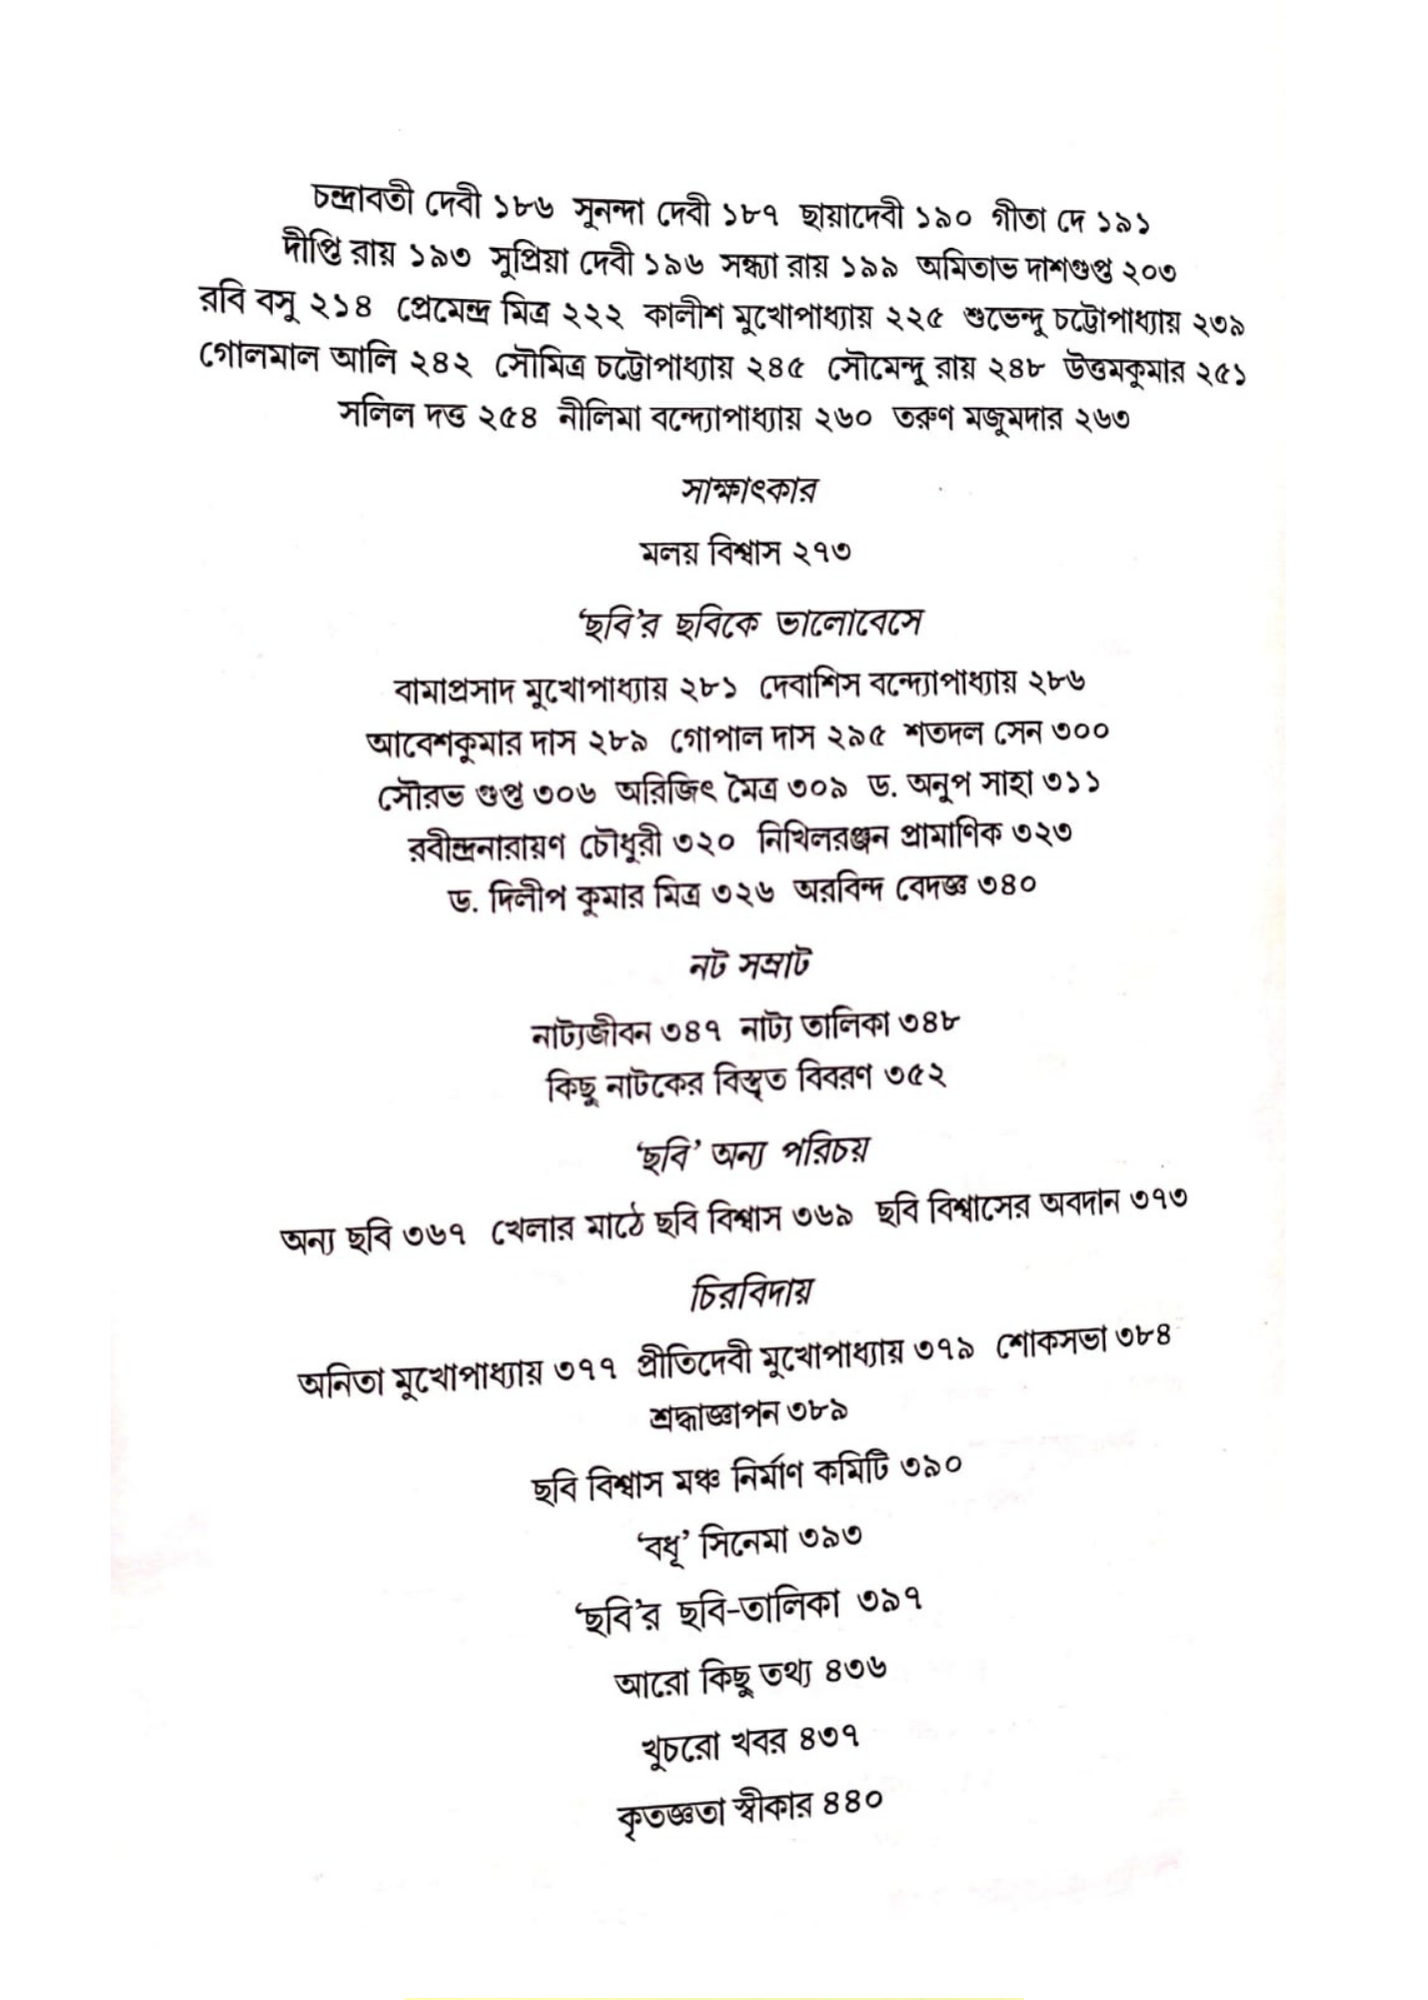 চন্দ্রাবতী দেবী ১৮৬ সুনন্দা দেবী ১৮৭ ছায়াদেবী ১৯০ গীতা দে ১৯১
দীপ্তি রায় ১৯৩ সুপ্রিয়া দেবী ১৯৬ সন্ধ্যা রায় ১৯৯ অমিতাভ দাশগুপ্ত ২০৩
রবি বসু ২১৪ প্রেমেন্দ্র মিত্র ২২২ কালীশ মুখোপাধ্যায় ২২৫ শুভেন্দু চট্টোপাধ্যায় ২৩৯
গোলমাল আলি ২৪২ সৌমিত্র চট্টোপাধ্যায় ২৪৫ সৌমেন্দু রায় ২৪৮ উত্তমকুমার ২৫১
সলিল দত্ত ২৫৪ নীলিমা বন্দ্যোপাধ্যায় ২৬০ তরুণ মজুমদার ২৬৩
সাক্ষাৎকার
মলয় বিশ্বাস ২৭৩
‘ছবি’র ছবিকে ভালোবেসে
বামাপ্রসাদ মুখোপাধ্যায় ২৮১ দেবাশিস বন্দ্যোপাধ্যায় ২৮৬
আবেশকুমার দাস ২৮৯ গোপাল দাস ২৯৫ শতদল সেন ৩০০
সৌরভ গুপ্ত ৩০৬ অরিজিৎ মৈত্র ৩০৯ ড. অনুপ সাহা ৩১১
রবীন্দ্রনারায়ণ চৌধুরী ৩২০ নিখিলরঞ্জন প্রামাণিক ৩২৩
ড. দিলীপ কুমার মিত্র ৩২৬ অরবিন্দ বেদজ্ঞ ৩৪০
নট সম্রাট
নাট্যজীবন ৩৪৭ নাট্য তালিকা ৩৪৮
কিছু নাটকের বিস্তৃত বিবরণ ৩৫২
‘ছবি’ অন্য পরিচয়
অন্য ছবি ৩৬৭ খেলার মাঠে ছবি বিশ্বাস ৩৬৯ ছবি বিশ্বাসের অবদান ৩৭৩
চিরবিদায়
অনিতা মুখোপাধ্যায় ৩৭৭ প্রীতিদেবী মুখোপাধ্যায় ৩৭৯ শোকসভা ৩৮৪
শ্রদ্ধাজ্ঞাপন ৩৮৯
ছবি বিশ্বাস মঞ্চ নির্মাণ কমিটি ৩৯০
‘বধূ’ সিনেমা ৩৯৩
‘ছবি’র ছবি-তালিকা ৩৯৭
আরো কিছু তথ্য ৪৩৬
খুচরো খবর ৪৩৭
কৃতজ্ঞতা স্বীকার ৪৪০